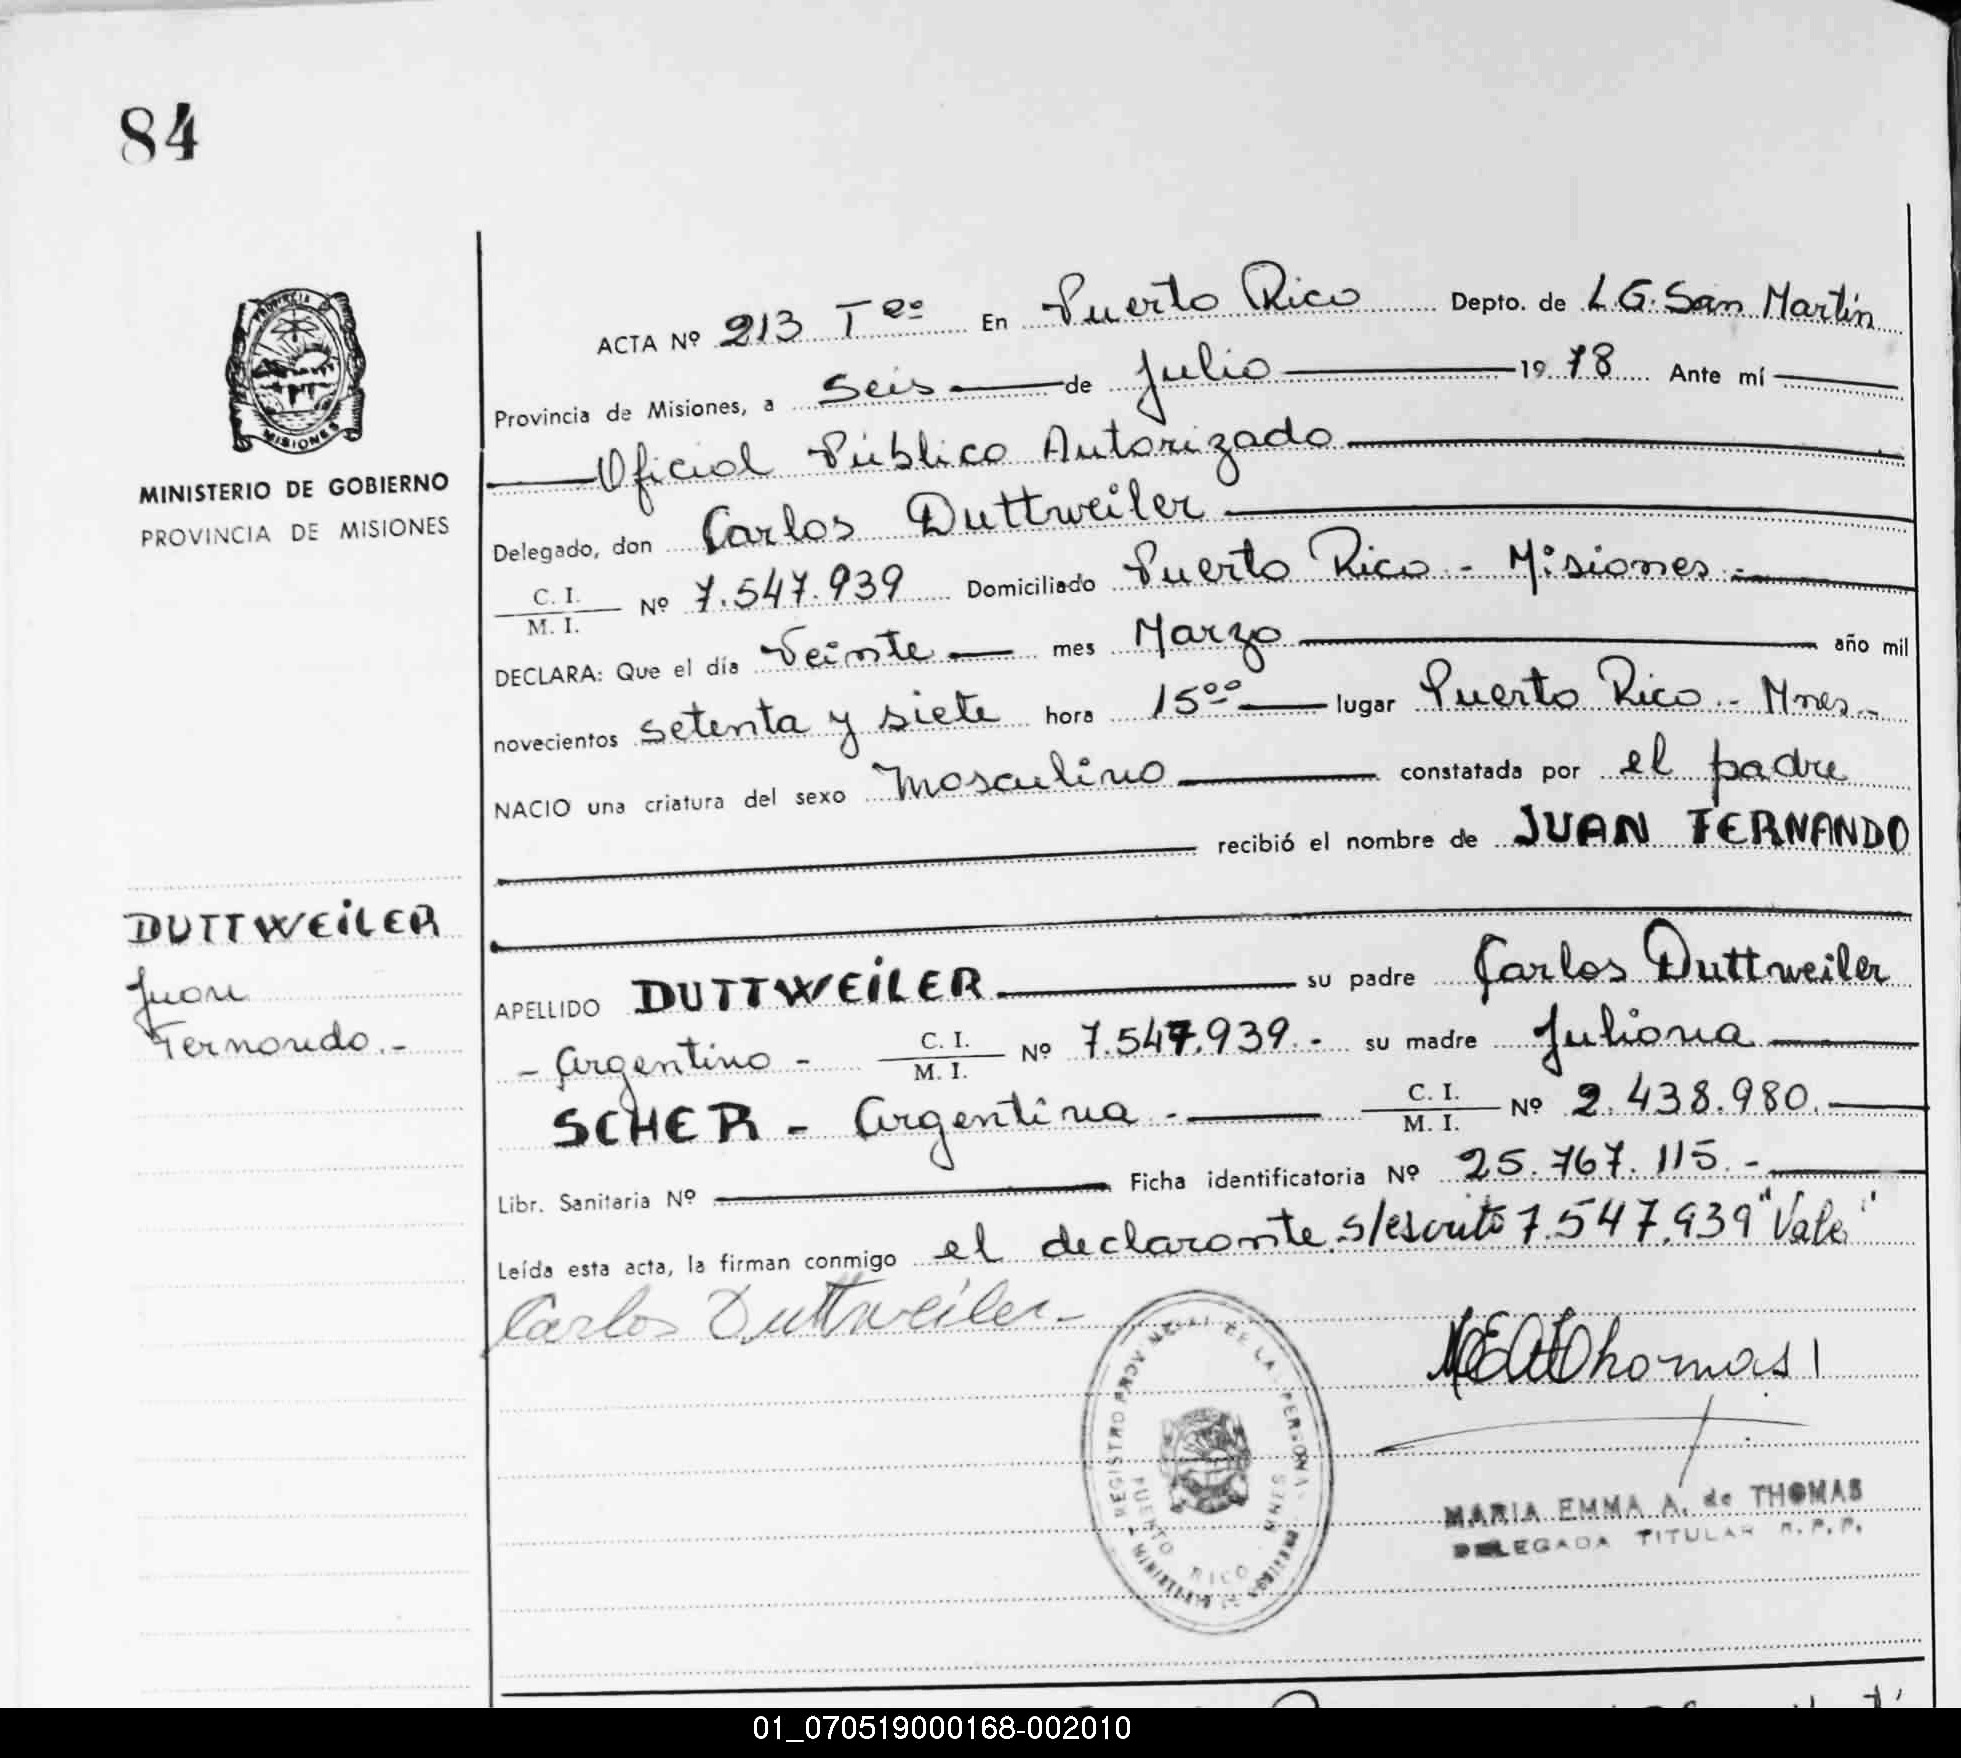 84
PROVINCIA
MISIONES
MINISTERIO DE GOBIERNO
PROVINCIA DE MISIONES
ACTA Nº 213 Tº En Puerto Rico Depto. de L.G. San Martín
Provincia de Misiones, a Seis de Julio 19 78 Ante mí
Oficial Público Autorizado
Delegado, don Carlos Duttweiler
C. I.
M. I. Nº 7.547.939 Domiciliado Puerto Rico - Misiones -
DECLARA: Que el día Veinte mes Marzo año mil
novecientos setenta y siete hora 15ºº lugar Puerto Rico - Mnes -
NACIO una criatura del sexo Masculino constatada por el padre
recibió el nombre de JUAN FERNANDO
DUTTWEILER
Juan
Fernando.-
APELLIDO DUTTWEILER su padre Carlos Duttweiler
- Argentino - C. I.
M. I. Nº 7.547.939.- su madre Juliana
SCHER - Argentina - C. I.
M. I. Nº 2.438.980.
Libr. Sanitaria Nº Ficha identificatoria Nº 25.767.115.-
Leída esta acta, la firman conmigo el declarante. s/escrito 7.547.939 "Vale"
Carlos Duttweiler-
REGISTRO PROVINCIAL DE LAS PERSONAS
PUERTO RICO - MNES
MEAThomas
MARIA EMMA A. de THOMAS
DELEGADA TITULAR R. P. P.
01_070519000168-002010